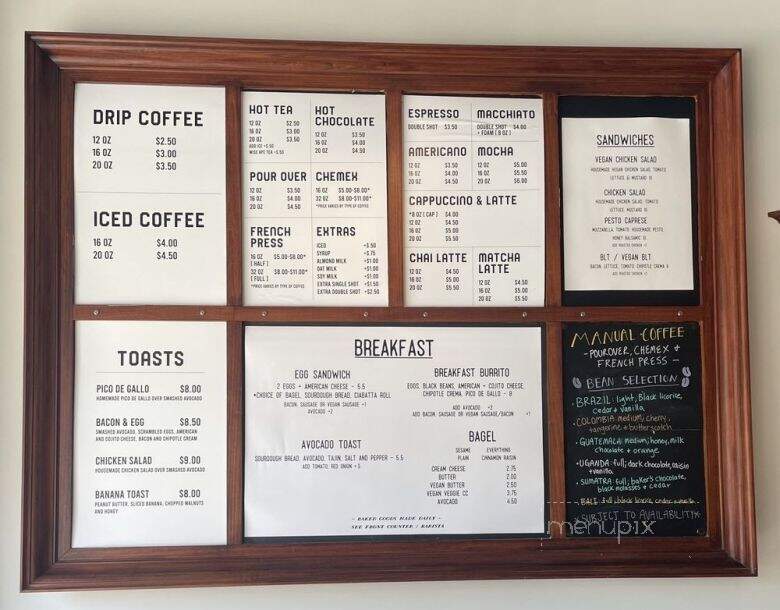 DRIP COFFEE
12 OZ $2.50
16 OZ $3.00
20 OZ $3.50
ICED COFFEE
16 OZ $4.00
20 OZ $4.50
HOT TEA
12 OZ $2.50
16 OZ $3.00
20 OZ $3.50
ADD ICE +.50
WISE APE TEA +.50
HOT
CHOCOLATE
12 OZ $3.50
16 OZ $4.00
20 OZ $4.50
POUR OVER
12 OZ $3.50
16 OZ $4.00
20 OZ $4.50
CHEMEX
16 OZ $5.00-$6.00*
32 OZ $8.00-$11.00*
*PRICE VARIES BY TYPE OF COFFEE
FRENCH
PRESS
16 OZ $5.00-$6.00*
[HALF]
32 OZ $8.00-$11.00*
[FULL]
*PRICE VARIES BY TYPE OF COFFEE
EXTRAS
ICED +.50
SYRUP +.75
ALMOND MILK +$1.00
OAT MILK +$1.00
SOY MILK +$1.00
EXTRA SINGLE SHOT +$1.50
EXTRA DOUBLE SHOT +$2.50
ESPRESSO
DOUBLE SHOT $3.50
MACCHIATO
DOUBLE SHOT $4.00
+ FOAM [8 OZ]
AMERICANO
12 OZ $3.50
16 OZ $4.00
20 OZ $4.50
MOCHA
12 OZ $5.00
16 OZ $5.50
20 OZ $6.00
CAPPUCCINO & LATTE
*8 OZ [CAP] $4.00
12 OZ $4.50
16 OZ $5.00
20 OZ $5.50
CHAI LATTE
12 OZ $4.50
16 OZ $5.00
20 OZ $5.50
MATCHA
LATTE
12 OZ $4.50
16 OZ $5.00
20 OZ $5.50
SANDWICHES
VEGAN CHICKEN SALAD
HOUSEMADE VEGAN CHICKEN SALAD, TOMATO
LETTUCE & MUSTARD
CHICKEN SALAD
HOUSEMADE CHICKEN SALAD, TOMATO
LETTUCE, MUSTARD
PESTO CAPRESE
MOZZARELLA, TOMATO, HOUSEMADE PESTO
HONEY BALSAMIC
ADD ROASTED CHICKEN
BLT / VEGAN BLT
BACON, LETTUCE, TOMATO, CHIPOTLE CREMA
ADD ROASTED CHICKEN
TOASTS
PICO DE GALLO $8.00
HOMEMADE PICO DE GALLO OVER SMASHED AVOCADO
BACON & EGG $8.50
SMASHED AVOCADO, SCRAMBLED EGGS, AMERICAN
AND COJITO CHEESE, BACON AND CHIPOTLE CREAM
CHICKEN SALAD $9.00
HOUSEMADE CHICKEN SALAD OVER SMASHED AVOCADO
BANANA TOAST $8.00
PEANUT BUTTER, SLICED BANANA, CHOPPED WALNUTS
AND HONEY
BREAKFAST
EGG SANDWICH
2 EGGS + AMERICAN CHEESE - 5.5
*CHOICE OF BAGEL, SOURDOUGH BREAD, CIABATTA ROLL
BACON, SAUSAGE OR VEGAN SAUSAGE +1
AVOCADO +2
AVOCADO TOAST
SOURDOUGH BREAD, AVOCADO, TAJIN, SALT AND PEPPER - 5.5
ADD TOMATO, RED ONION +
BREAKFAST BURRITO
EGGS, BLACK BEANS, AMERICAN + COJITO CHEESE,
CHIPOTLE CREMA, PICO DE GALLO - 8
ADD AVOCADO +2
ADD BACON, SAUSAGE OR VEGAN SAUSAGE/BACON +1
BAGEL
SESAME EVERYTHING
PLAIN CINNAMON RAISIN
CREAM CHEESE 2.75
BUTTER 2.00
VEGAN BUTTER 2.50
VEGAN VEGGIE CC 3.75
AVOCADO 4.50
- BAKED GOODS MADE DAILY -
SEE FRONT COUNTER / BARISTA
MANUAL COFFEE
- POUROVER, CHEMEX +
FRENCH PRESS -
BEAN SELECTION
• BRAZIL: light, Black licorice,
cedar + vanilla
• COLOMBIA: medium, cherry,
tangerine + butterscotch
• GUATEMALA: medium, honey, milk
chocolate + orange
• UGANDA: full, dark chocolate, raisin
+ vanilla
• SUMATRA: full, baker's chocolate,
black molasses + cedar
• BALI: full, black licorice, cedar
* SUBJECT TO AVAILABILITY *
menupix